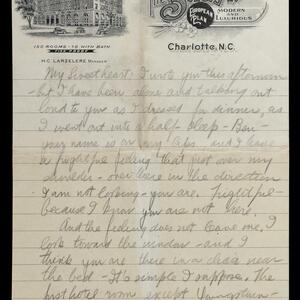 EUROPEAN PLAN
MODERN
AND
LUXURIOUS
150 ROOMS - 75 WITH BATH
FIREPROOF
H.C. LARZELERE MANAGER
Charlotte, N.C.
My Sweetheart: I wrote you this afternoon
- but I have been alone and talking out
loud to you as I dressed for dinner, as
I went out into a half sleep - Ben -
your name is on my lips - and I have
a frightful feeling that just over my
shoulder - over here in the direction
I am not looking - you are. Frightful -
because I know you are not here.
And the feeling does not leave me. I
look toward the window - and I
think you are there in a chair near
the bed - It's simple I suppose. The
first hotel room except